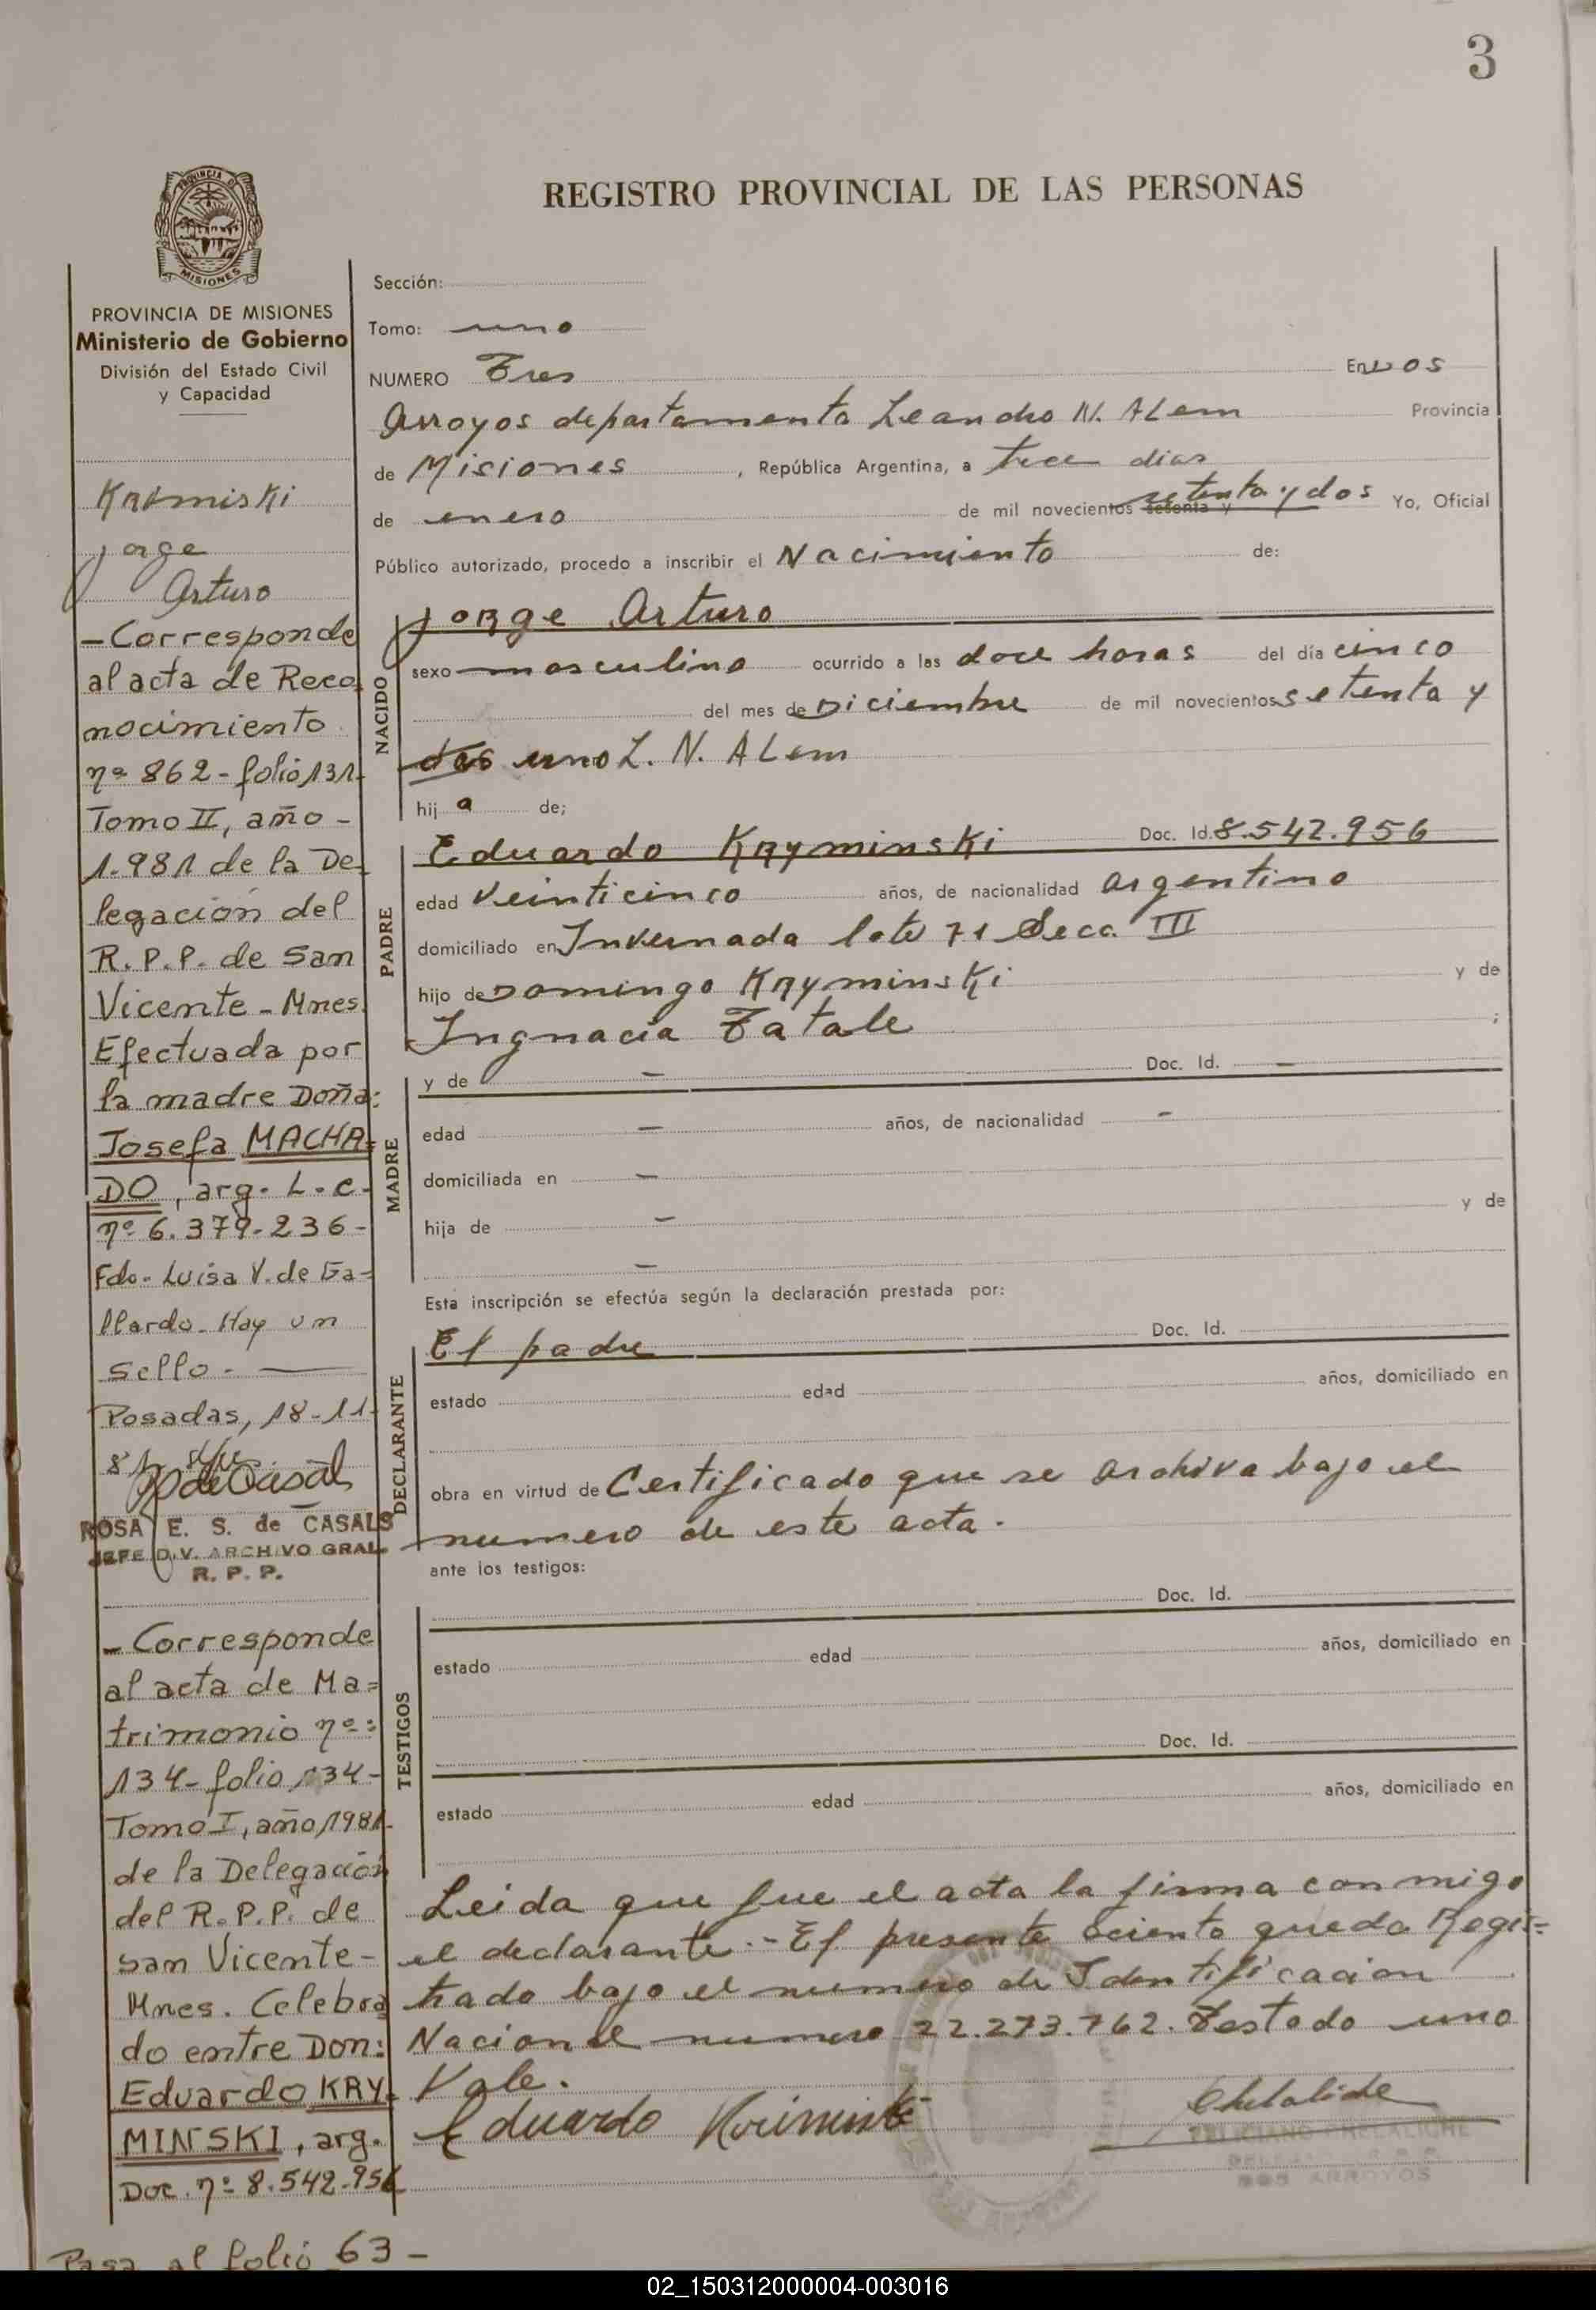 3
REGISTRO PROVINCIAL DE LAS PERSONAS
PROVINCIA DE MISIONES
Ministerio de Gobierno
División del Estado Civil
y Capacidad
Krymiski
Jorge
Arturo
—Corresponde
al acta de Reco
nocimiento
nº 862-folio 131-
Tomo II, año-
1.981 de la De-
legación del
R.P.P. de San
Vicente-Mnes.
Efectuada por
la madre Doña:
Josefa MACHA=
DO, arg. L.C.
nº 6.379.236-
Fdo. Luisa V. de Ga=
llardo. Hay un
sello.-
Posadas, 18-11-
81
ROSA E. S. de CASALS
JEFE DIV. ARCHIVO GRAL.
R. P. P.
—Corresponde
al acta de Ma=
trimonio nº:
134-folio 134-
Tomo I, año 1981-
de la Delegación
del R.P.P. de
San Vicente-
Mnes. Celebra
do entre Don:
Eduardo KRY=
MINSKI, arg.
Doc. nº: 8.542.956
Pasa al folio 63-
Sección:
Tomo: uno
NUMERO Tres En Dos
Arroyos departamento Leandro N. ALem Provincia
de Misiones, República Argentina, a trece dias
de enero de mil novecientos sesenta y setenta y dos Yo, Oficial
Público autorizado, procedo a inscribir el Nacimiento de:
NACIDO
Jorge Arturo
sexo masculino ocurrido a las doce horas del día cinco
del mes de Diciembre de mil novecientos setenta y
dos uno L. N. ALem
hij a de;
PADRE
Eduardo Kryminski Doc. Id. 8.542.956
edad veinticinco años, de nacionalidad argentino
domiciliado en Invernada lote 71 Secc. III
hijo de Domingo Kryminski y de
Ingnacia Tatale ;
MADRE
y de — Doc. Id. —
edad — años, de nacionalidad —
domiciliada en —
hija de — y de
—
Esta inscripción se efectúa según la declaración prestada por:
DECLARANTE
El padre Doc. Id.
estado edad años, domiciliado en
obra en virtud de Certificado que se archiva bajo el
numero de este acta.
ante los testigos:
TESTIGOS
Doc. Id.
estado edad años, domiciliado en
Doc. Id.
estado edad años, domiciliado en
Leida que fue el acta la firma conmigo
el declarante.- El presente aciento queda Regis=
trado bajo el numero de Identificacion
Nacional numero 22.273.762. Testado uno
Vale.
Eduardo
FELICIANO CHELALICHE
DOS ARROYOS
02_150312000004-003016